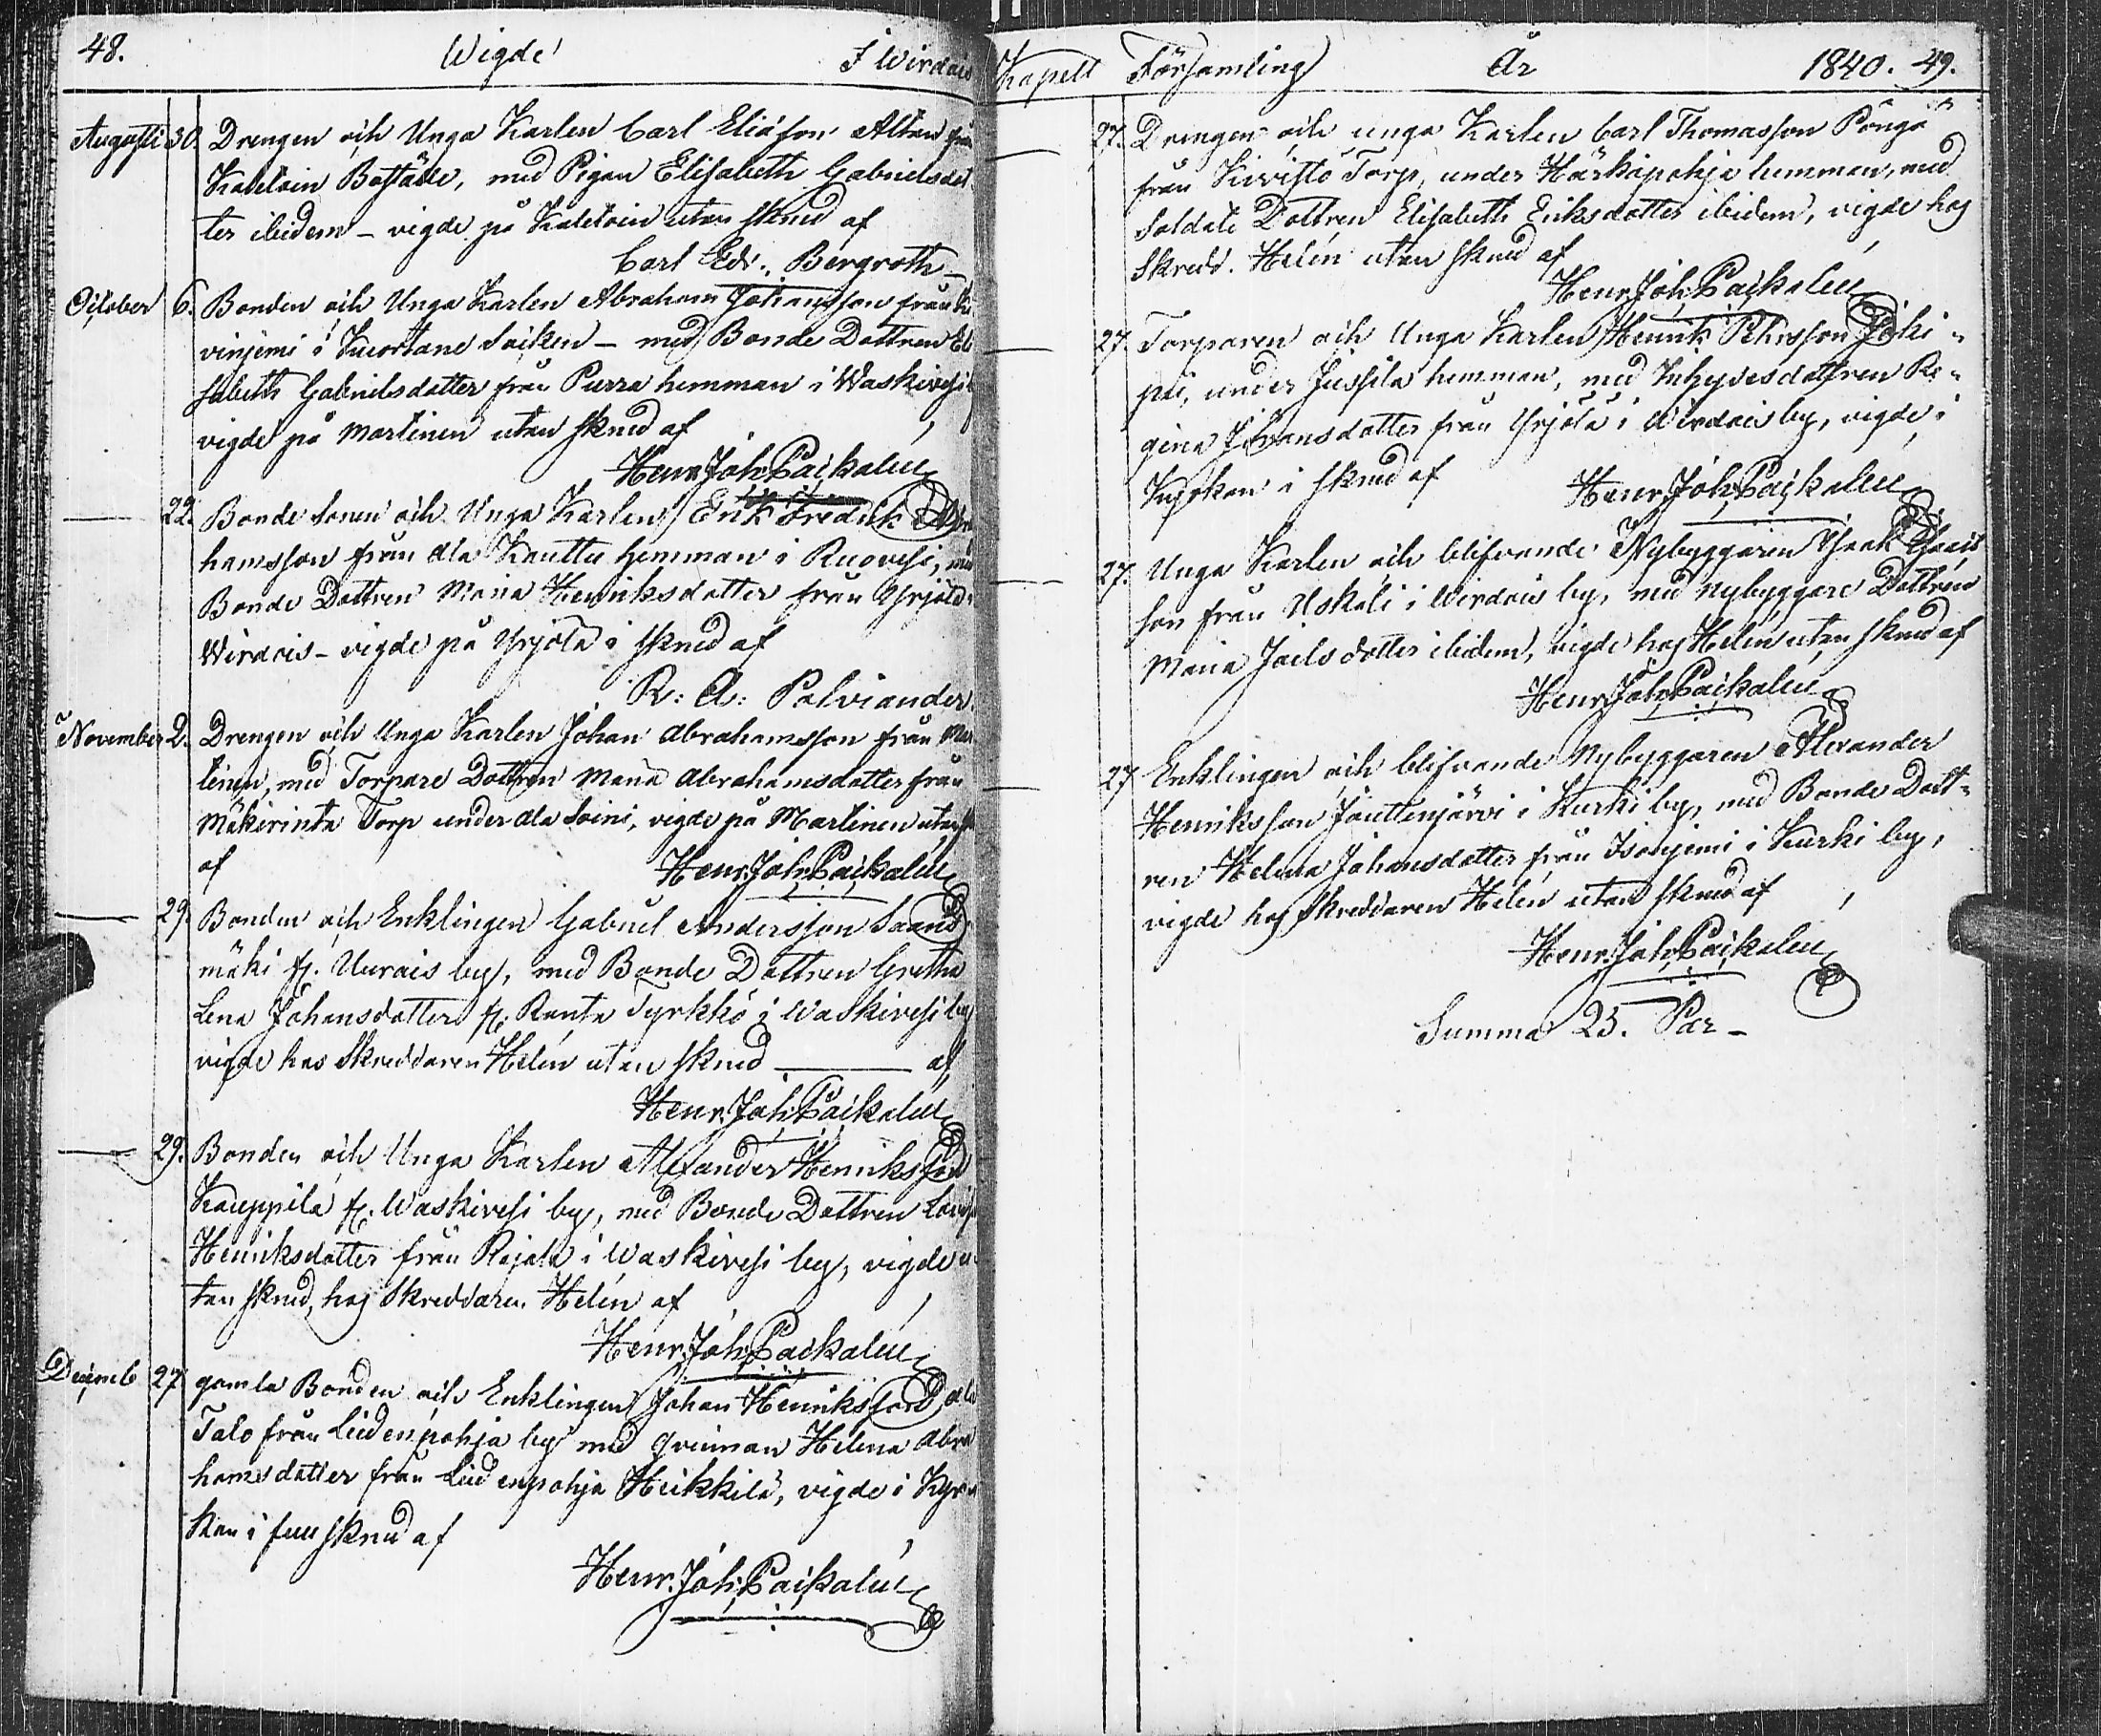 48. Wigde I Wirdois
Augusti 30. Drengen och Unga Karlen Carl Eliasson Alten från
Kaleloin Boställe, med Pigan Elisabeth Gabrielsdot
ter ibidem – vigde på Kaleloin utan skrud af
Carl Edv. Bergroth
October 6. Bonden och Unga Karlen Abraham Johansson från
vinjemi i Kuortane Socken – med Bonde Dottren Eli
sabeth Gabrielsdotter från Purra hemman i Waskivesi
vigde på Martinen utan skrud af
Henr. Joh. Paikalén
— 22. Bonde Sonen och Unga Karlen Erik Fredrik Abra
hamsson från Ala Kauttu hemman i Ruovesi, med
Bonde Dottren Maria Henriksdotter från Yrjölä
Wirdois – vigde på Yrjölä i skrud af
R: A: Polviander
November 2. Drengen och Unga Karlen Johan Abrahamsson från Mar
tinen, med Torpare Dottren Maria Abrahamsdotter från
Mäkirinta Torp under Ala Soini, vigde på Martinen utan
af Henr. Joh. Paikalén
— 29. Bonden och Enklingen Gabriel Andersson Saanis
mäki fr. Uurais by, med Bonde Dottren Gretha
Lena Johansdotter fr. Ranta Tyrkkö i Waskivesi by
vigde hos Skreddaren Helén utan skrud — af
Henr. Joh. Paikalén
— 29. Bonden och Unga Karlen Alexander Henriksson
Kauppila fr. Waskivesi by, med Bonde Dottren Lovisa
Henriksdotter från Rajala i Waskivesi by, vigde u-
tan skrud, hos Skreddaren Helén af
Henr. Joh. Paikalén
Decemb 27 gamla Bonden och Enklingen Johan Henriksson, Ala
Talo från Liedenpohja by med qvinnan Helena Abra
hamsdotter från Liedenpohja Heikkilä, vigde i Kyr-
kan i full skrud af
Henr. Joh. Paikalén
Kapell Församling År 1840. 49.
— 27. Drengen och unga Karlen Carl Thomasson Pöngä
från Kivistö Torp, under Härkäpohja hemman, med
Soldate Dottren Elisabeth Eriksdotter ibidem, vigde hos
Skredd. Helén utan skrud af
Henr. Joh. Paikalén
— 27. Torparen och Unga Karlen Henrik Pehrsson Joki-
pii, under Jussila hemman, med Inhysesdottren Re-
gina Johansdotter från Yrjölä i Wirdois by, vigde i
Kyrkan i skrud af Henr. Joh. Paikalén
— 27. Unga Karlen och blifvande Nybyggaren Isaak Isaks
son från Uskali i Wirdois by, med nybyggare Dottren
Maria Joelsdotter ibidem, vigde hos Helén utan skrud af
Henr. Joh. Paikalén
— 27 Enklingen och blifvande Nybyggaren Alexander
Henriksson Jouttenjärvi i Kurki by, med Bonde Dott-
ren Helena Johansdotter från Isoniemi i Kurki by,
vigde hos Skreddaren Helén utan skrud af
Henr. Joh. Paikalén
Summa 25. Par –